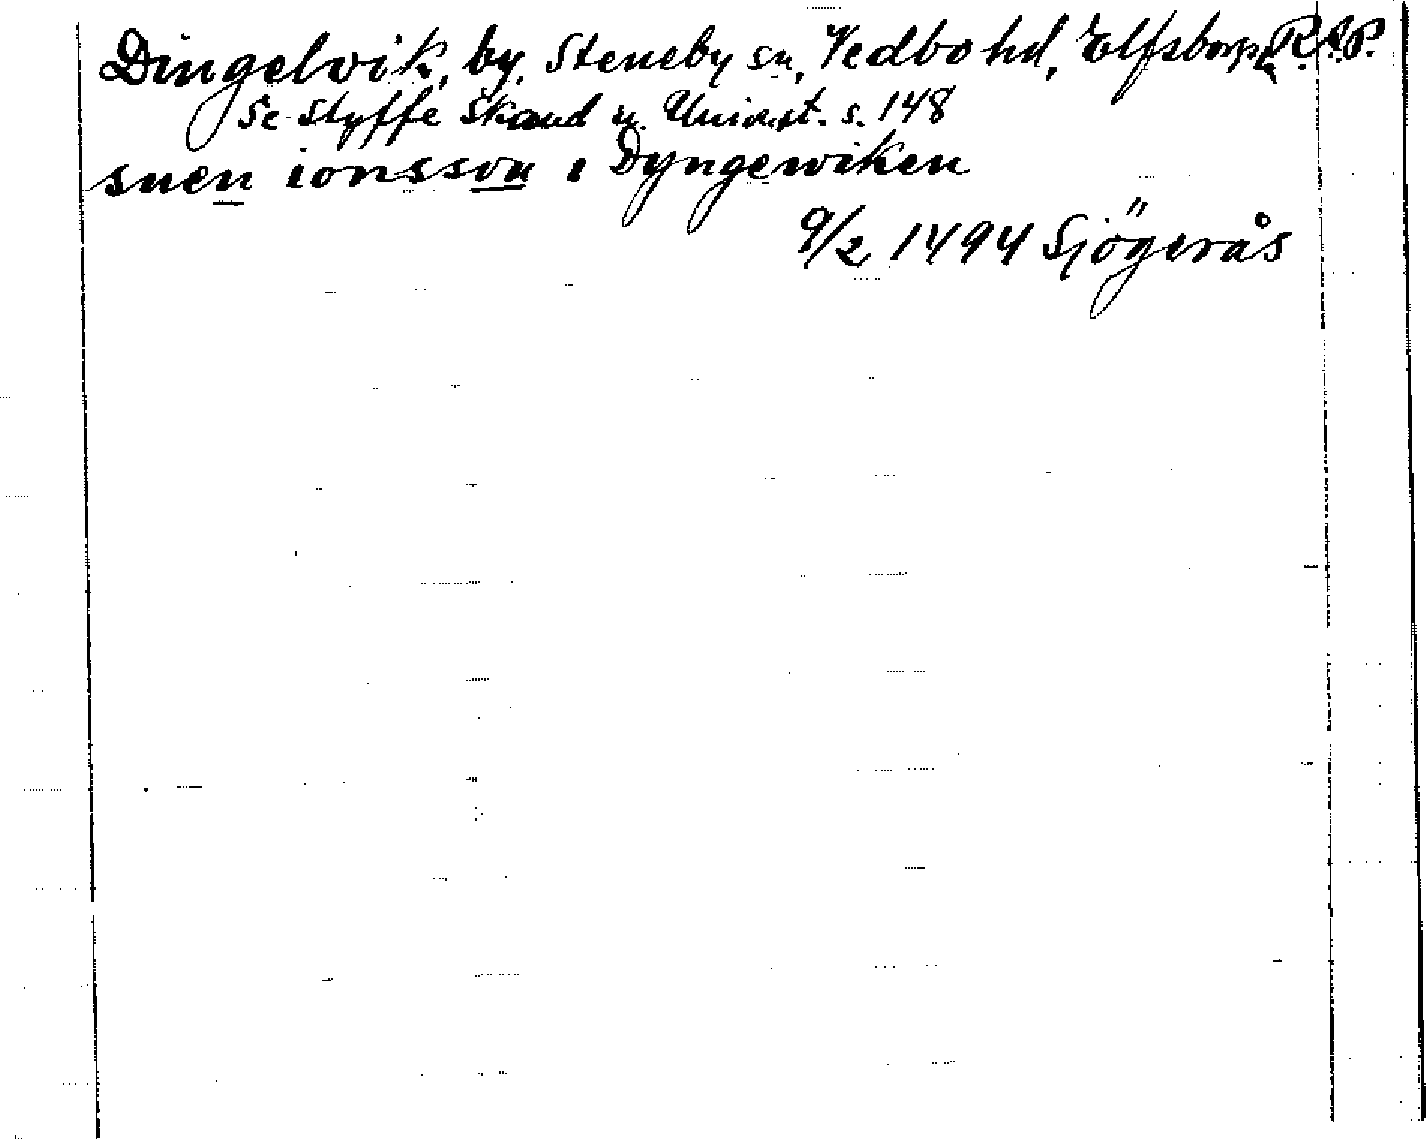 Dingelvik, by, Steneby sn, Vedbo hd, Elfsborgs R.A.P.
Se Styffe Skand u. Unionst. s. 148
suen ionsson i Dyngewiken
9/2 1494 Sjögerås